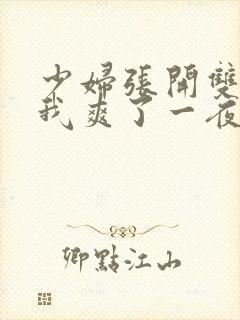 少婦張開雙
我爽了一夜
卿點江山